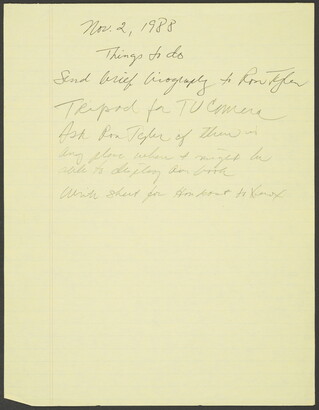 Nov. 2, 1988
Things to do
Send brief biography to Ron Tyler
Tripod for TV Camera
Ask Ron Tyler if there is
any place where I might be
able to display our book
Write sheet for handout to Xerox